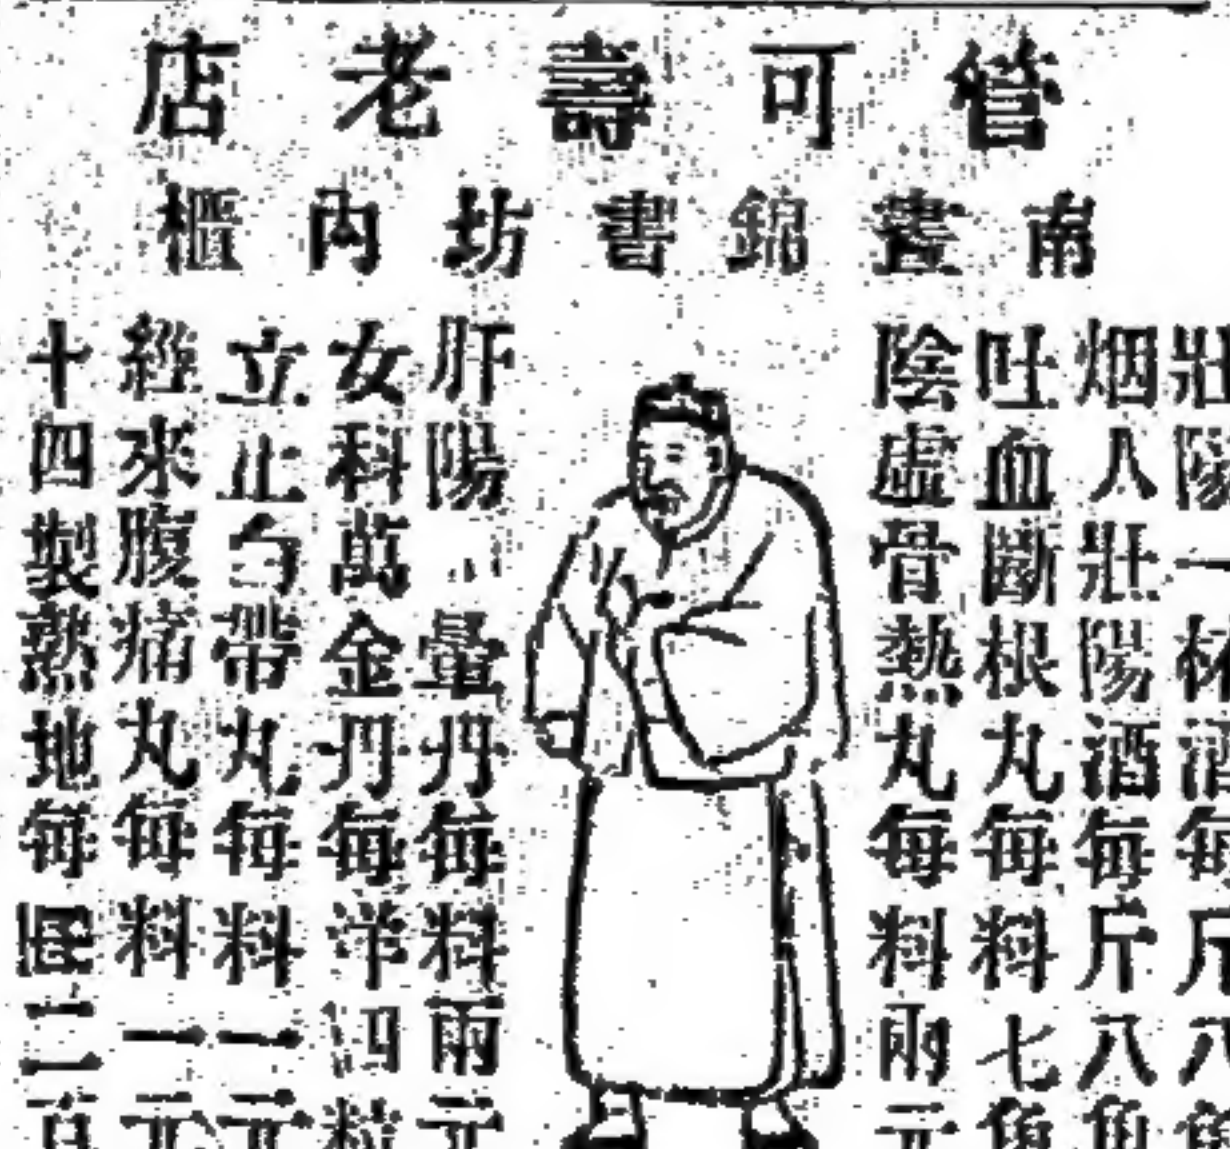 管可壽老店
南壽錦書坊內櫃
壯陽一杯酒每斤八角
烟人壯陽酒每斤八角
吐血斷根丸每料七角
陰虛骨熱丸每料兩元
肝陽暈丹每料兩元
女科萬金丹每洋四粒
立止勻帶丸每料一元
經來腹痛丸每料一元
十四製熟地每二百